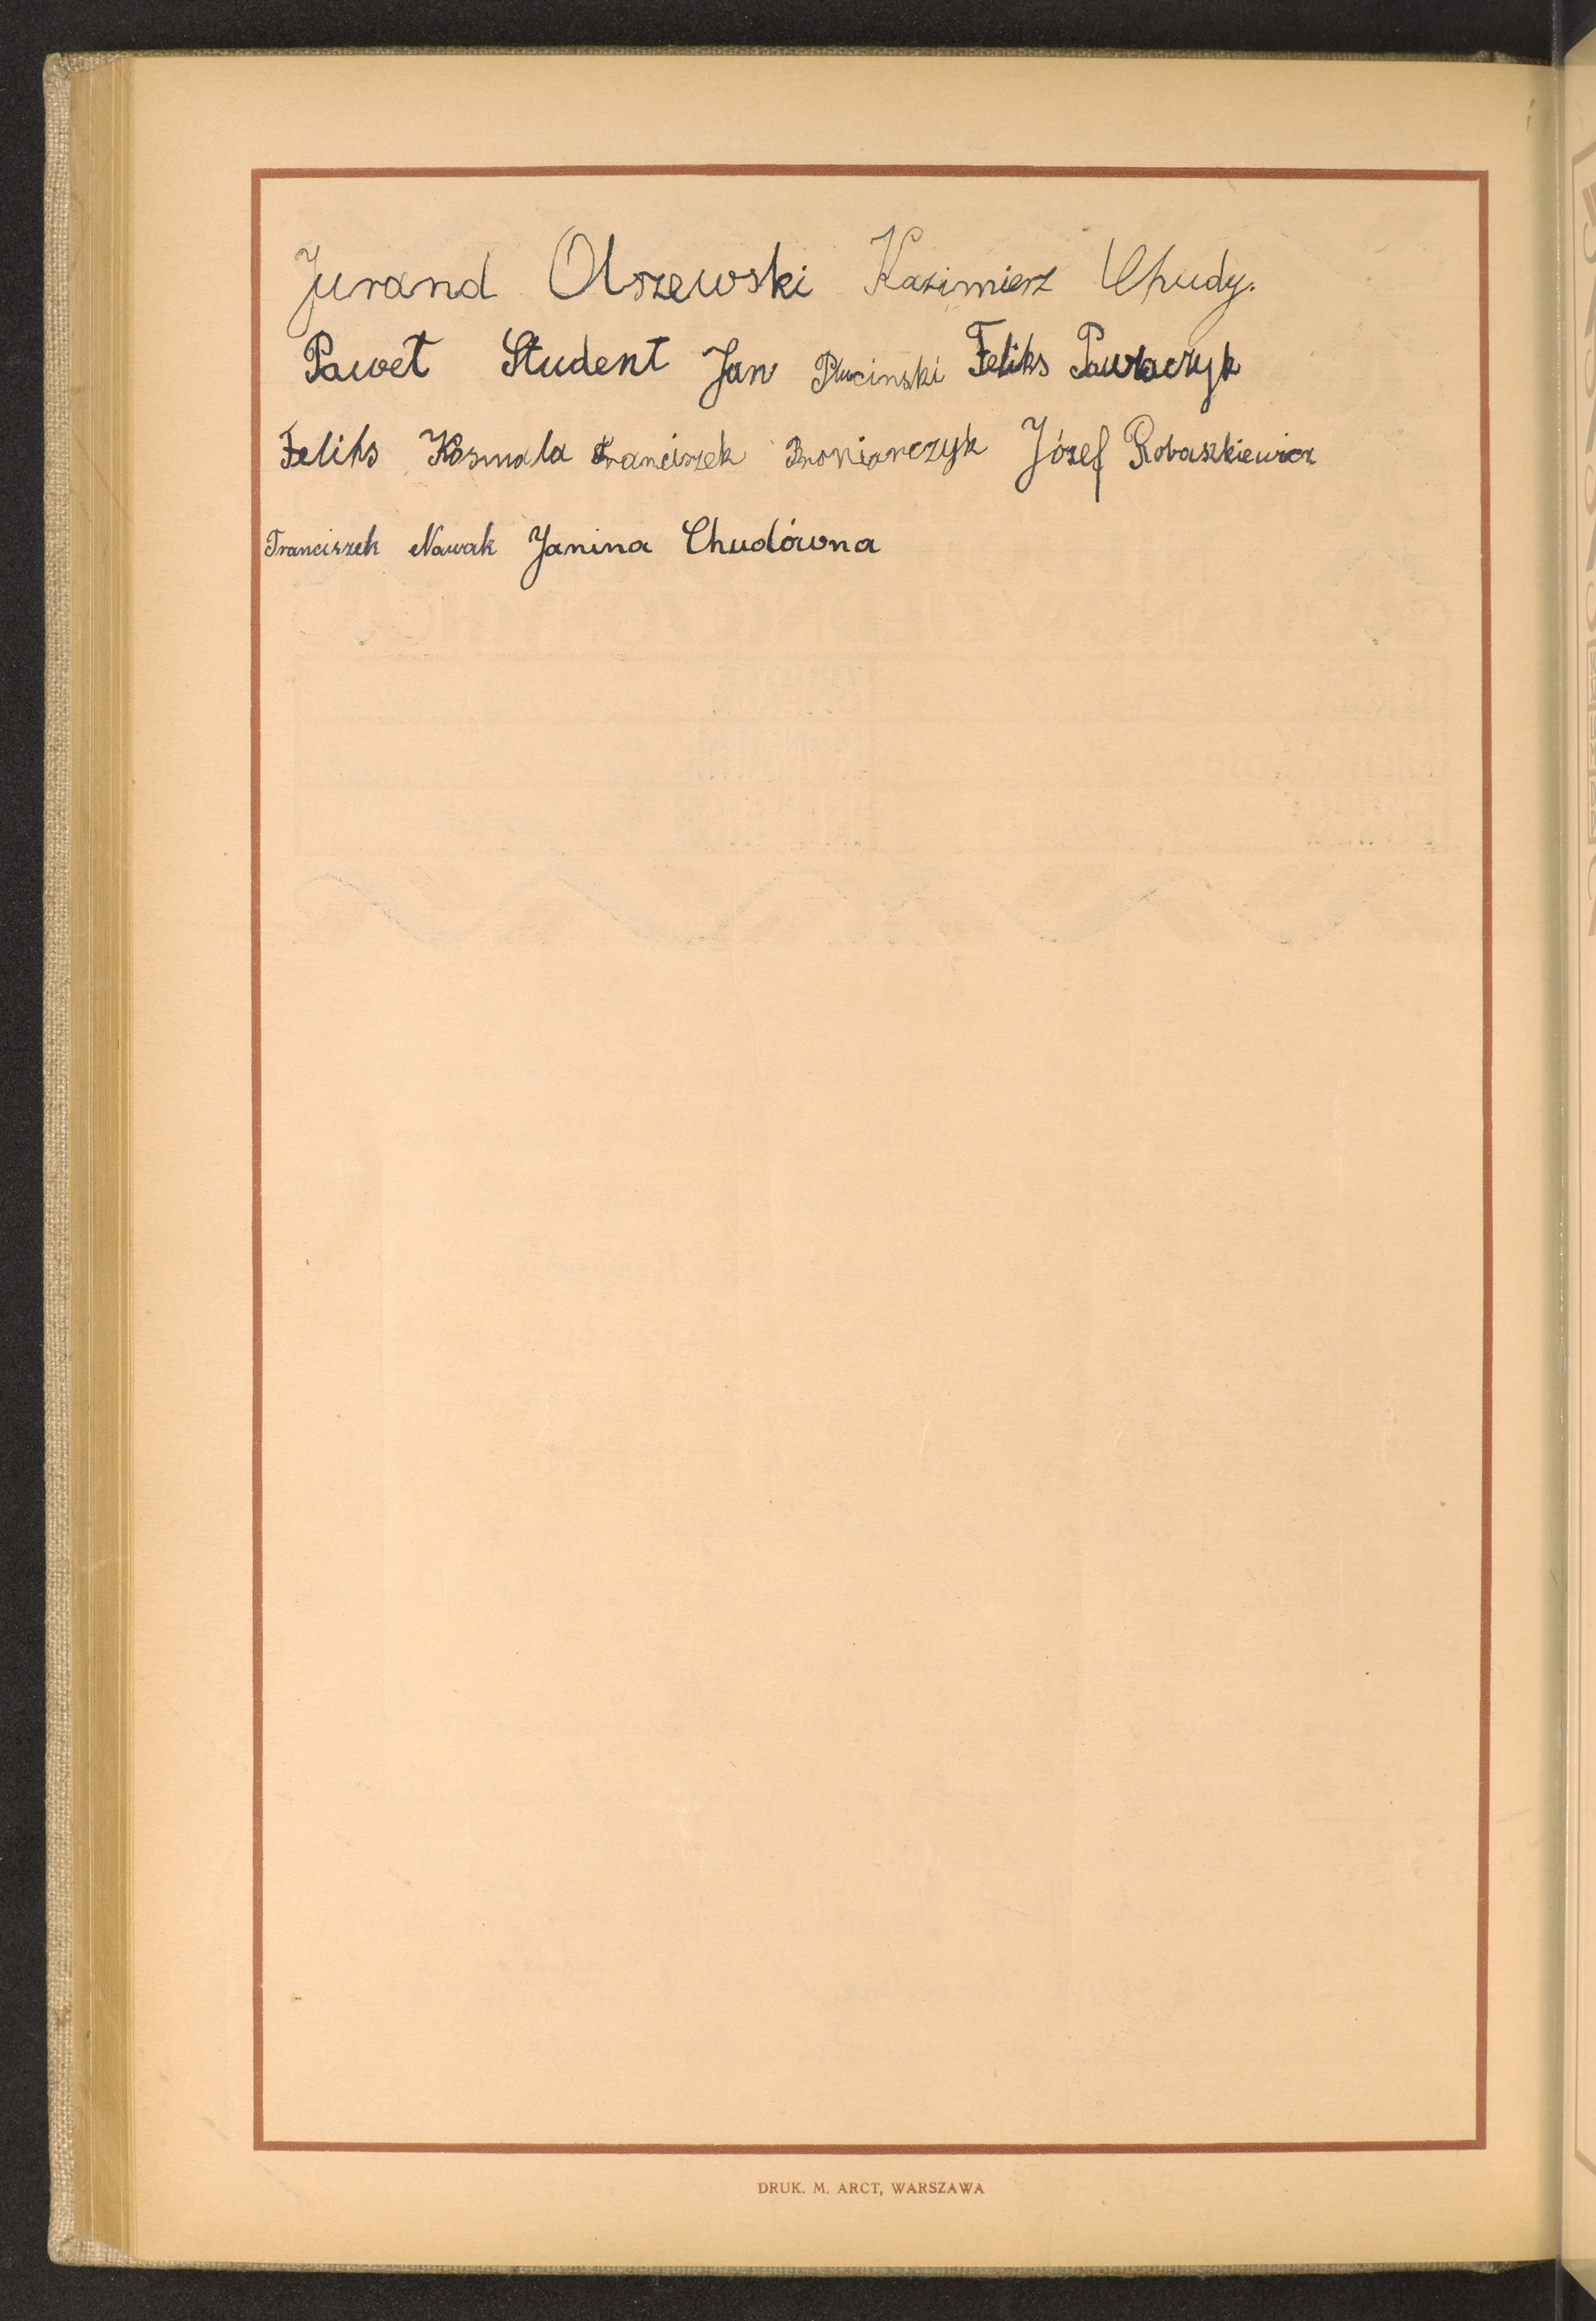 Jurand Olszewski Kazimierz Chudy.
Paweł Student Jan Pluciński Feliks Pawlaczyk
Feliks Kosmala Franciszek Broniarczyk Józef Robaszkiewicz
Franciszek Nawak Janina Chudówna
DRUK. M. ARCT, WARSZAWA